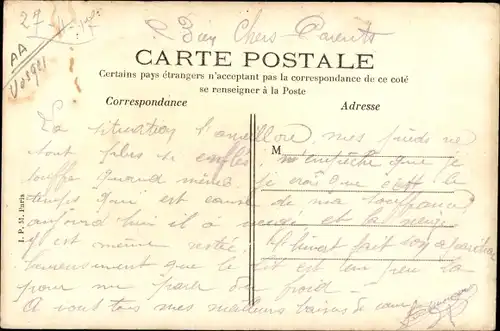 27-11-17
Bien Chers Parents
AA
Vosges
CARTE POSTALE
Certains pays étrangers n'acceptant pas la correspondance de ce coté
se renseigner à la Poste
Correspondance
Adresse
M
La situation s'améliore, mes pieds ne
sont plus si enflés, n'empêche que je
souffre quand même, je crois que c'est le
temps qui est cause de ma souffrance
aujourd'hui il a neigé et la neige
est même restée l'hiver fait son apparition
heureusement que le lit est un peu la
pour me parler du froid
A vous tous mes meilleurs baisers de
I. P. M. Paris